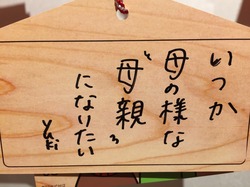 いつか
母の様な
母親
になりたい
Yuki